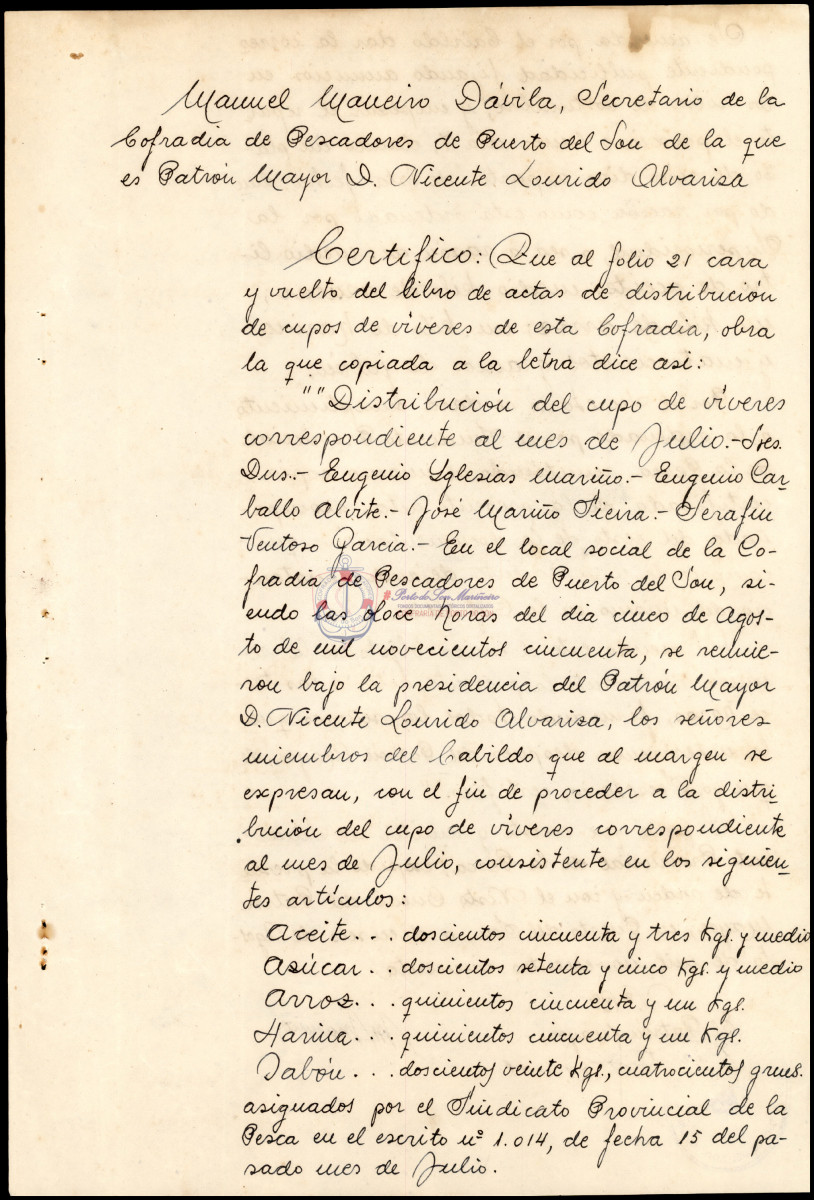 Manuel Maneiro Dávila, Secretario de la
Cofradia de Pescadores de Puerto del Son de la que
es Patrón Mayor D. Vicente Lourido Alvariza
Certifico: Que al folio 21 cara
y vuelto del libro de actas de distribución
de cupos de víveres de esta Cofradia, obra
la que copiada a la letra dice asi:
""Distribución del cupo de víveres
correspondiente al mes de Julio.- Sres.
Dns.- Eugenio Yglesias Mariño.- Eugenio Car-
ballo Alvite.- José Mariño Pieira.- Serafin
Ventoso Garcia.- En el local social de la Co-
fradia de Pescadores de Puerto del Son, si-
endo las doce horas del dia cinco de Agos-
to de mil novecientos cincuenta, se reunie-
ron bajo la presidencia del Patrón Mayor
D. Vicente Lourido Alvariza, los señores
miembros del Cabildo que al margen se
expresan, con el fin de proceder a la distri-
bución del cupo de víveres correspondiente
al mes de Julio, consistente en los siguien-
tes artículos:
Aceite... doscientos cincuenta y tres Kgs. y medio
Azúcar.. doscientos setenta y cinco Kgs. y medio
Arroz... quinientos cincuenta y un Kgs.
Harina... quinientos cincuenta y un Kgs.
Jabón... doscientos veinte Kgs., cuatrocientos grms.
asignados por el Sindicato Provincial de la
Pesca en el escrito nº 1.014, de fecha 15 del pa-
sado mes de Julio.